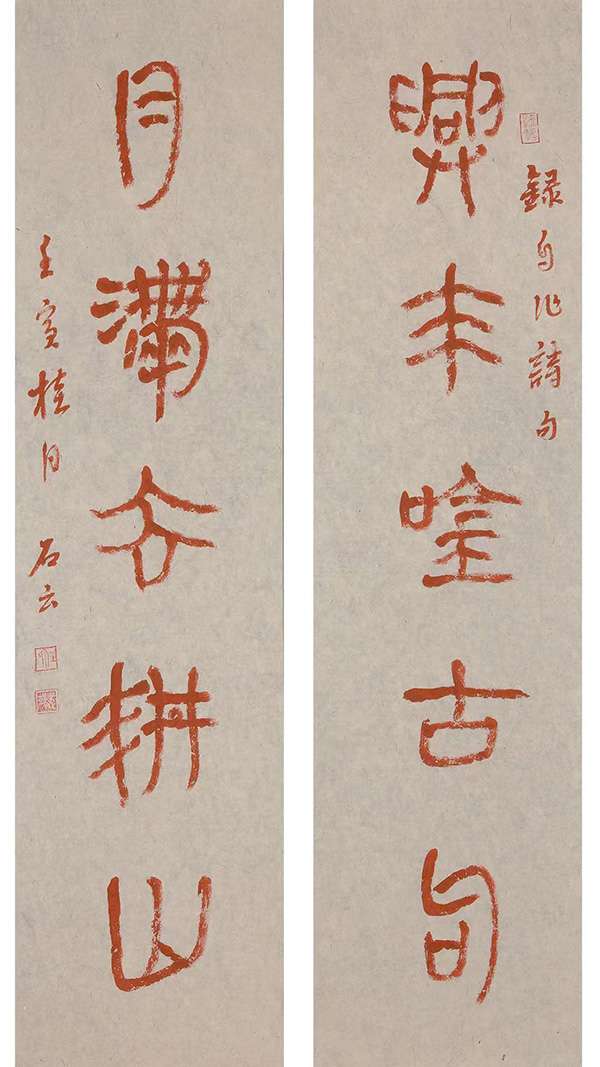 錄自作詩句
興来唫古句
月滿去耕山
壬寅桂月 石云